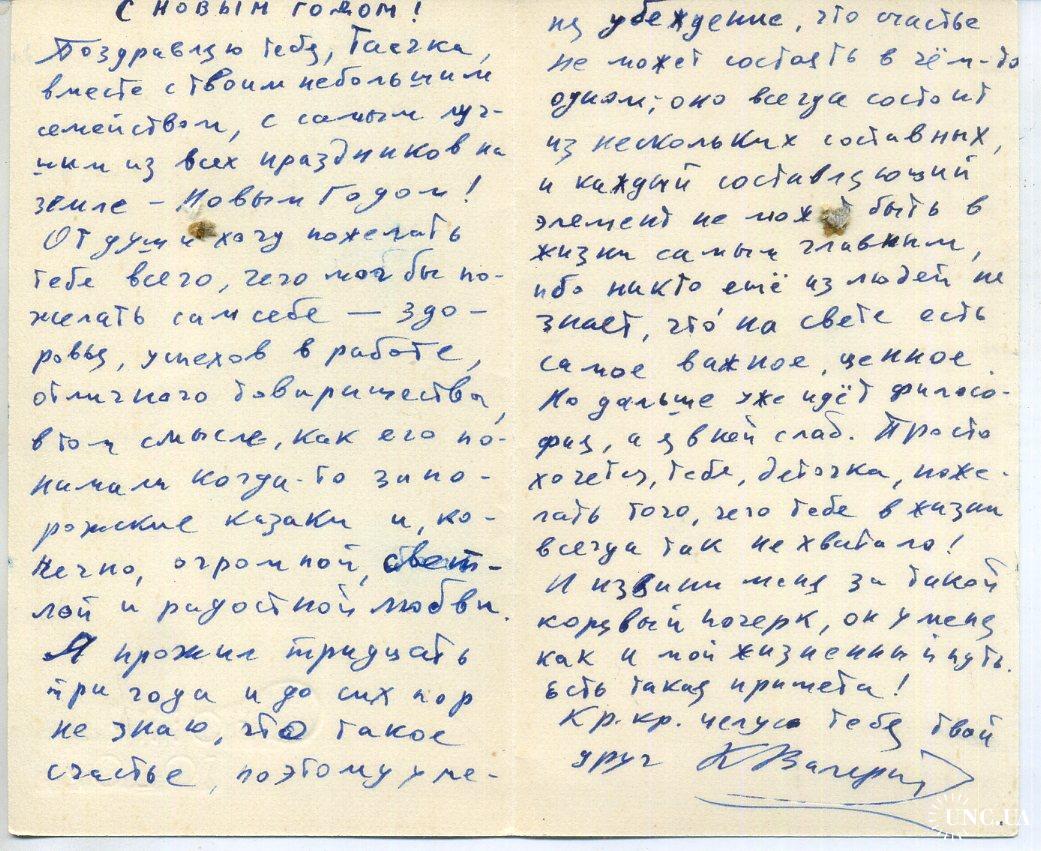 С НОВЫМ ГОДОМ!
Поздравляю тебя, Таечка,
вместе с твоим небольшим
семейством, с самым луч-
шим из всех праздников на
земле – Новым Годом!
От души хочу пожелать
тебе всего, чего мог бы по-
желать сам себе – здо-
ровья, успехов в работе,
отличного товарищества,
в том смысле, как его по-
нимали когда-то запо-
рожские казаки и, ко-
нечно, огромной, свет-
лой и радостной любви.
Я прожил тридцать
три года и до сих пор
не знаю, что такое
счастье, поэтому у ме-
ня убеждение, что счастье
не может состоять в чём-то
одном; оно всегда состоит
из нескольких составных,
и каждый составляющий
элемент не может быть в
жизни самым главным,
ибо никто ещё из людей не
знает, что на свете есть
самое важное, ценное.
Но дальше уже идёт филосо-
фия, а я в ней слаб. Просто
хочется, тебе, деточка, поже-
лать того, чего тебе в жизни
всегда так не хватало!
И извини меня за такой
корявый почерк, он у меня
как и мой жизненный путь.
Есть такая примета!
Кр. кр. целую тебя твой
друг К Валерий
UNC.UA